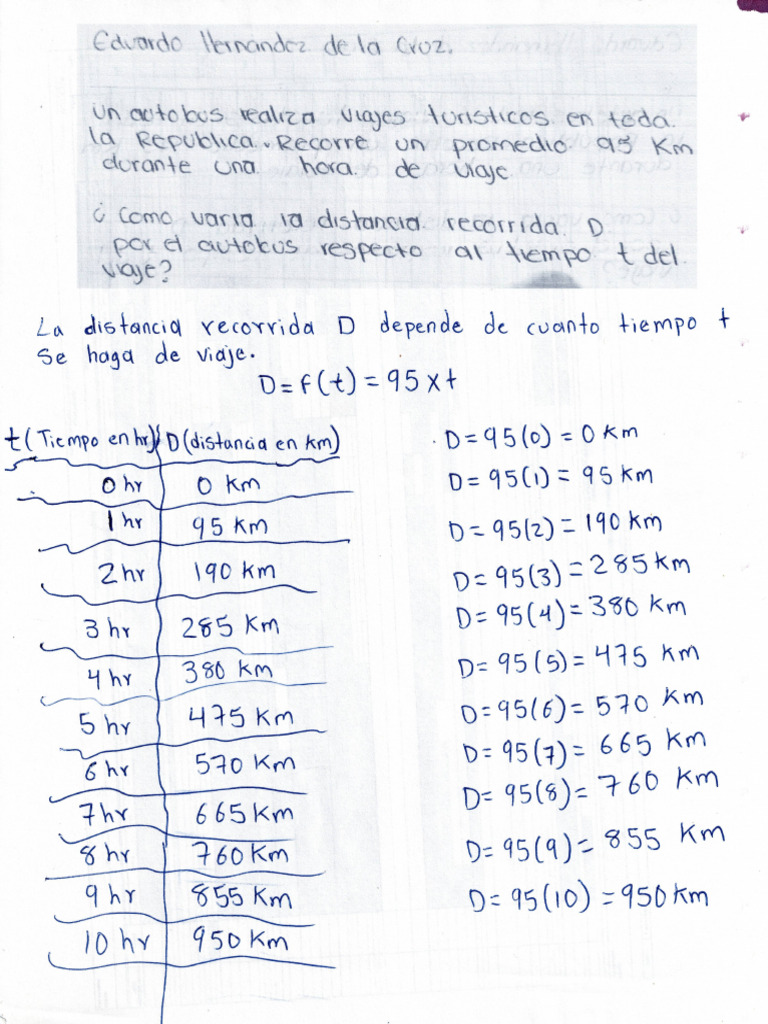 Eduardo Hernández de la Cruz.
un autobus realiza viajes turisticos en toda.
la Republica. Recorre un promedio 95 Km
durante una hora de viaje.
¿ Como varia la distancia recorrida. D
por el autobus respecto al tiempo t del
viaje?
La distancia recorrida D depende de cuanto tiempo t
se haga de viaje.
D = f(t) = 95 x t
t (Tiempo en hr) D (distancia en Km)
0 hr 0 Km
1 hr 95 Km
2 hr 190 Km
3 hr 285 Km
4 hr 380 Km
5 hr 475 Km
6 hr 570 Km
7 hr 665 Km
8 hr 760 Km
9 hr 855 Km
10 hr 950 Km
D = 95(0) = 0 Km
D = 95(1) = 95 Km
D = 95(2) = 190 Km
D = 95(3) = 285 Km
D = 95(4) = 380 Km
D = 95(5) = 475 Km
D = 95(6) = 570 Km
D = 95(7) = 665 Km
D = 95(8) = 760 Km
D = 95(9) = 855 Km
D = 95(10) = 950 Km